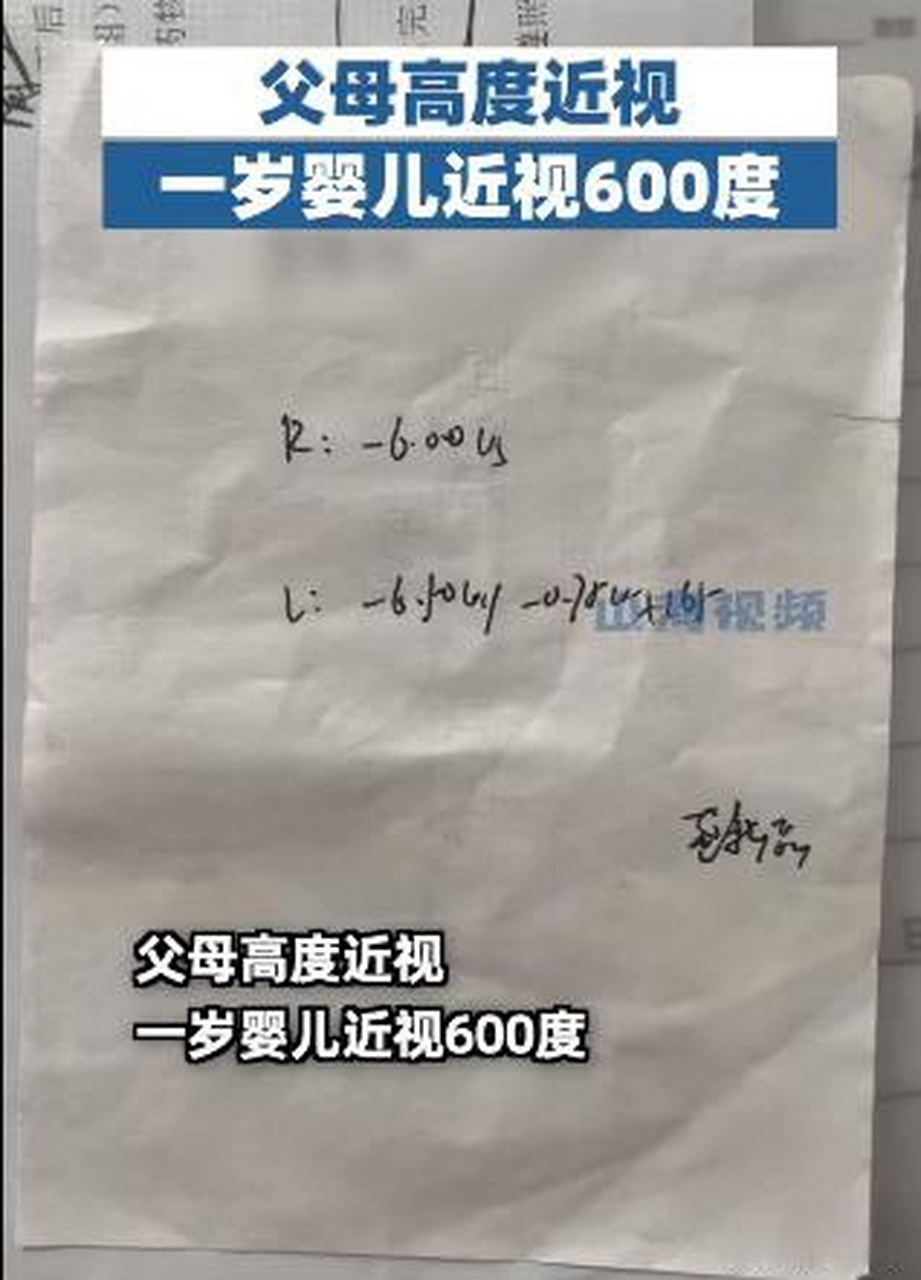 父母高度近视
一岁婴儿近视600度
R: -6.00
L: -6.50 -0.75 ×165
视频
父母高度近视
一岁婴儿近视600度